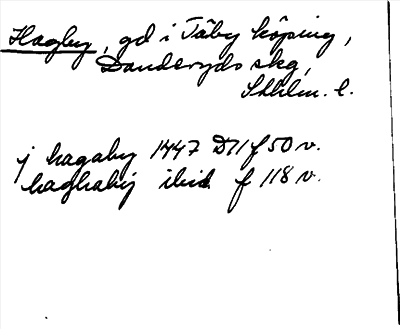 Hagby, gd i Täby köping,
Danderyds skg,
Sthlm. l.
j hagaby 1447 D11 f 50 v.
haghabij ibid. f 118 v.